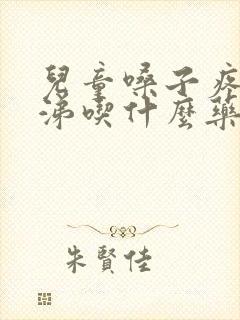 兒童嗓子疼
涕喫什麼藥
朱賢佳